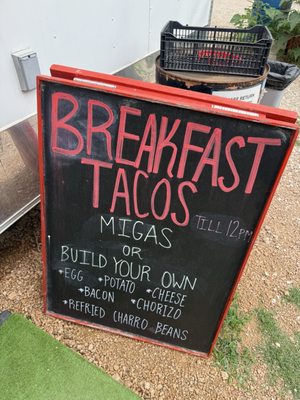 BREAKFAST
TACOS TILL 12PM
MIGAS
OR
BUILD YOUR OWN
*EGG *POTATO *CHEESE
*BACON *CHORIZO
*REFRIED CHARRO BEANS